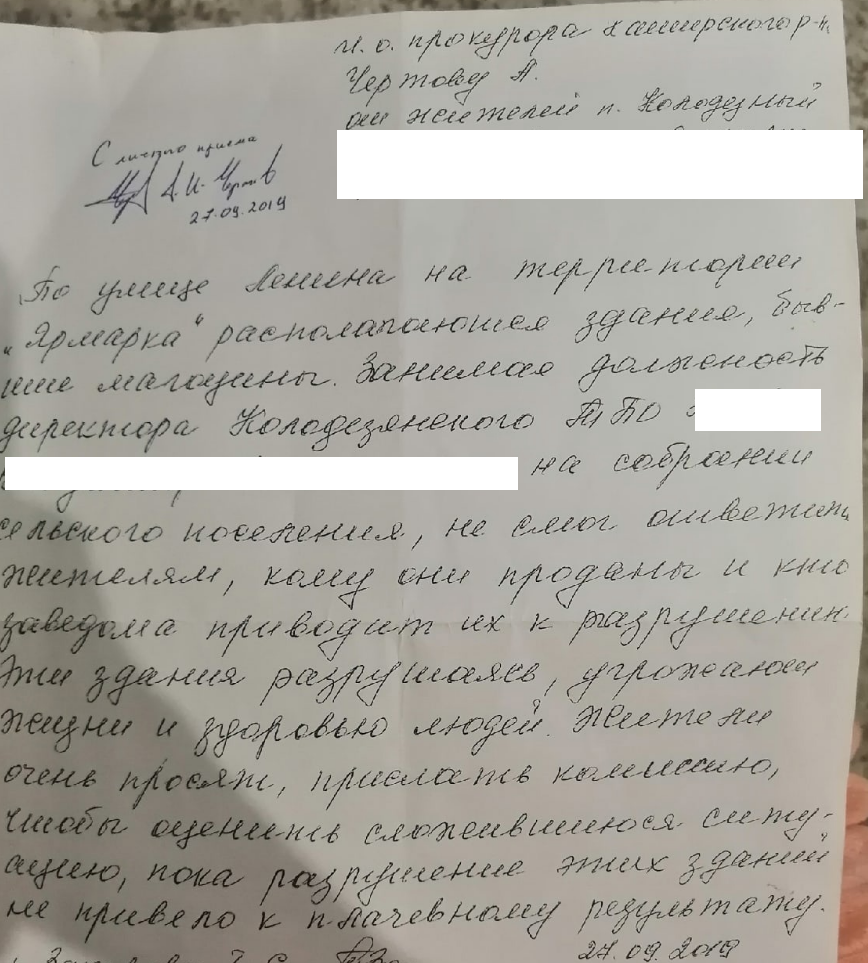 И.о. прокурора Каширского р-н.
Чертову А.
от жителей п. Колодезный
С личного приема
А.И. Чертов
27.09.2019
По улице Ленина на территории
„Ярмарка“ располагаются здания, быв-
шие магазины. Занимая должность
директора Колодезянского ТПО
на собрании
сельского поселения, не смог ответить
жителям, кому они проданы и кто
заведома приводит их к разрушению.
Эти здания разрушаясь, угрожают
жизни и здоровью людей. Жители
очень просят, прислать комиссию,
чтобы оценить сложившиюся ситу-
ацию, пока разрушение этих зданий
не привело к плачевному результату.
27.09.2019